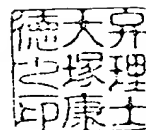 弁理士
大塚康
徳之印